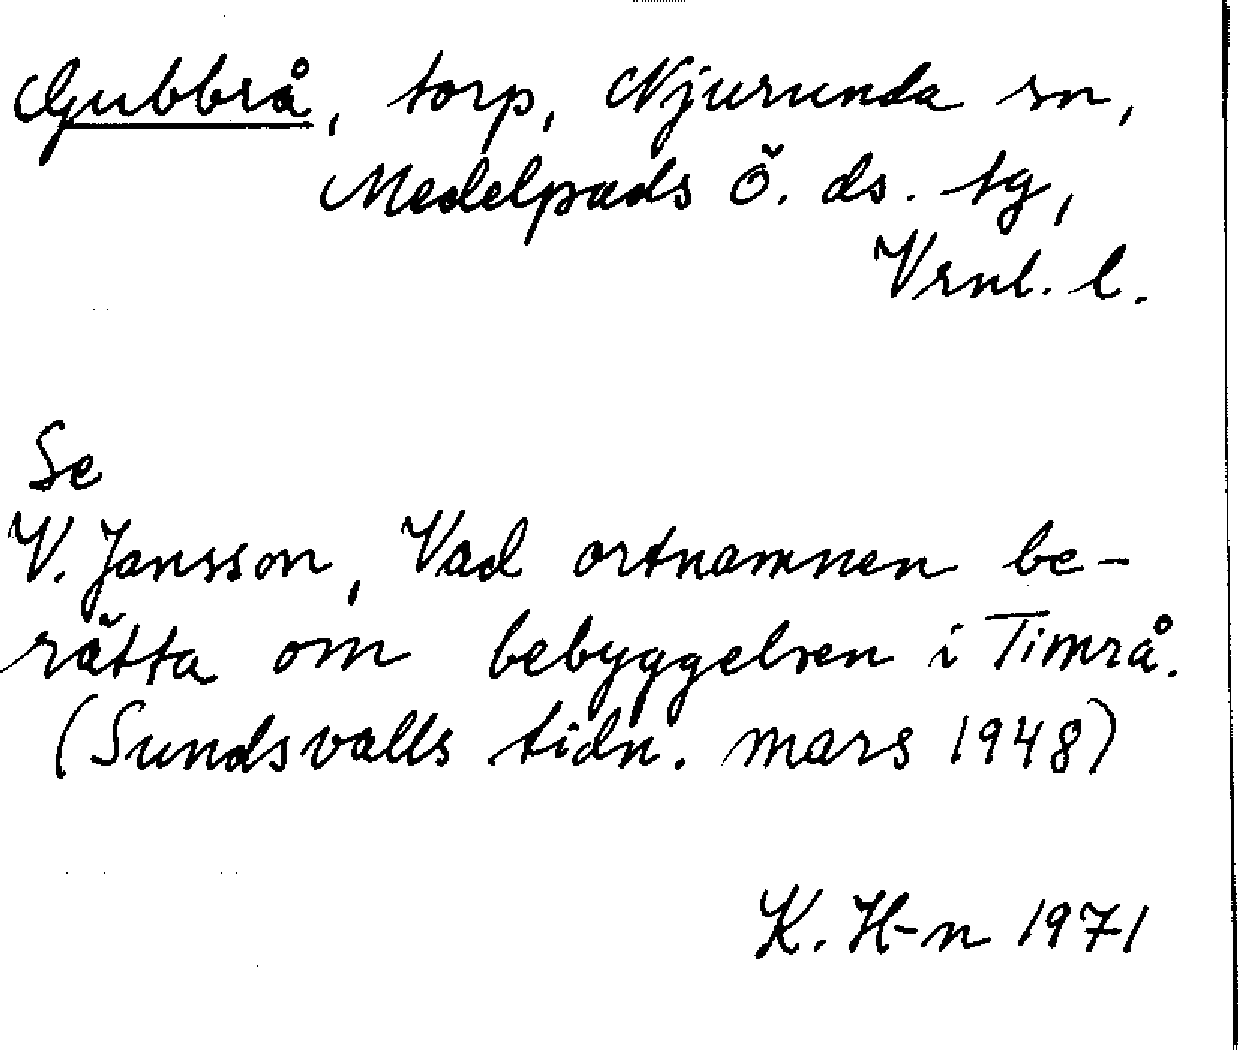 Gubbrå, torp, Njurunda sn,
Medelpads Ö. ds. tg,
Vrnl. l.
Se
V. Jansson, Vad ortnamnen be-
rätta om bebyggelsen i Timrå.
(Sundsvalls tidn. mars 1948)
K. H-n 1971